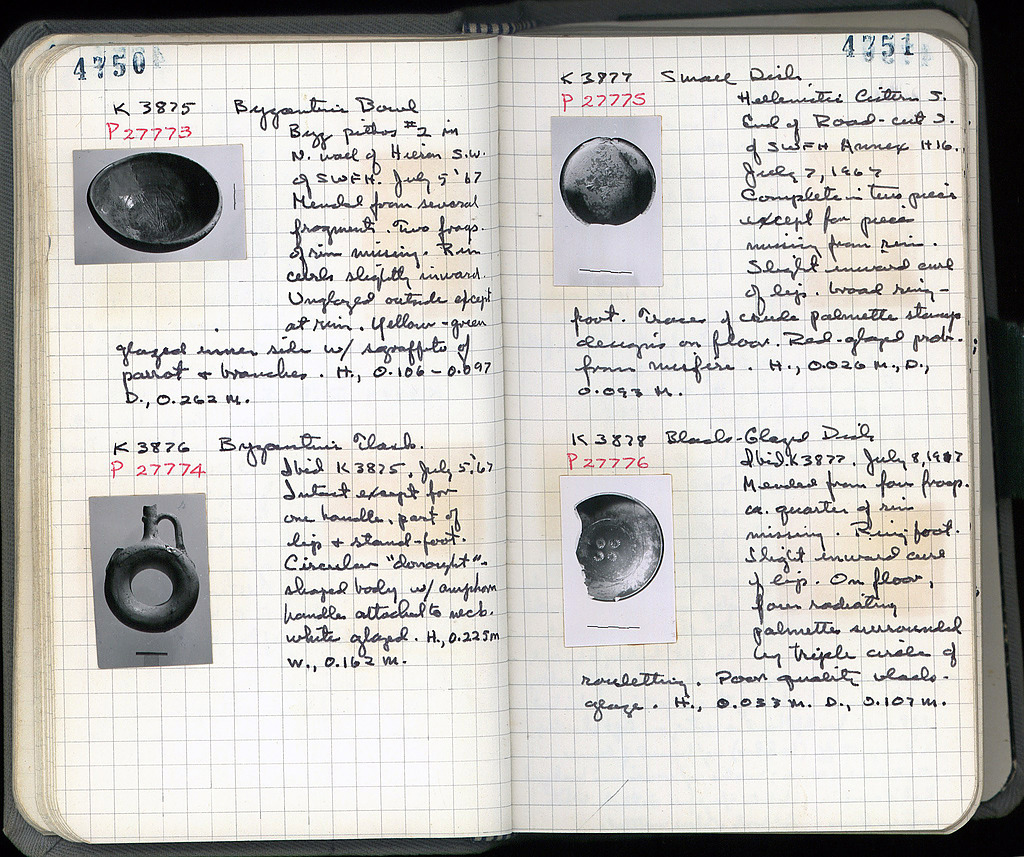 4750
K 3875 Byzantine Bowl
P 27773
Byz pithos #2 in
N. wall of Hieron S.W.
of SWFH. July 5 '67
Mended from several
fragments. Two frags.
of rim missing. Rim
curls slightly inward.
Unglazed outside except
at rim. Yellow-green
glazed inner side w/ sgraffito of
parrot & branches. H., 0.106-0.097
D., 0.262 M.
K 3876 Byzantine Flask.
P 27774
Ibid K3875, July 5, '67
Intact except for
one handle, part of
lip & stand-foot.
Circular "donought"-
shaped body w/ amphora
handles attached to neck.
White glazed. H., 0.225m
W., 0.162 m.
4751
K 3877 Small Dish
P 27775
Hellenistic Cistern S.
End of Road-cut S.
of SWFH Annex H16.
July 7, 1967
Complete in two pieces
except for piece
missing from rim.
Slight inward curl
of lip. broad ring-
foot. Traces of crude palmette stamp
designs on floor. Red-glazed prob.
from misfire. H., 0.026 M., D.,
0.093 M.
K 3878 Black-Glazed Dish
P 27776
Ibid. K3877. July 8, 1967
Mended from four frags.
ca. quarter of rim
missing. Ring foot.
Slight inward curl
of lip. On floor,
four radiating
palmettes surrounded
by triple circle of
rouletting. Poor quality black-
glaze. H., 0.033 M. D., 0.107 M.